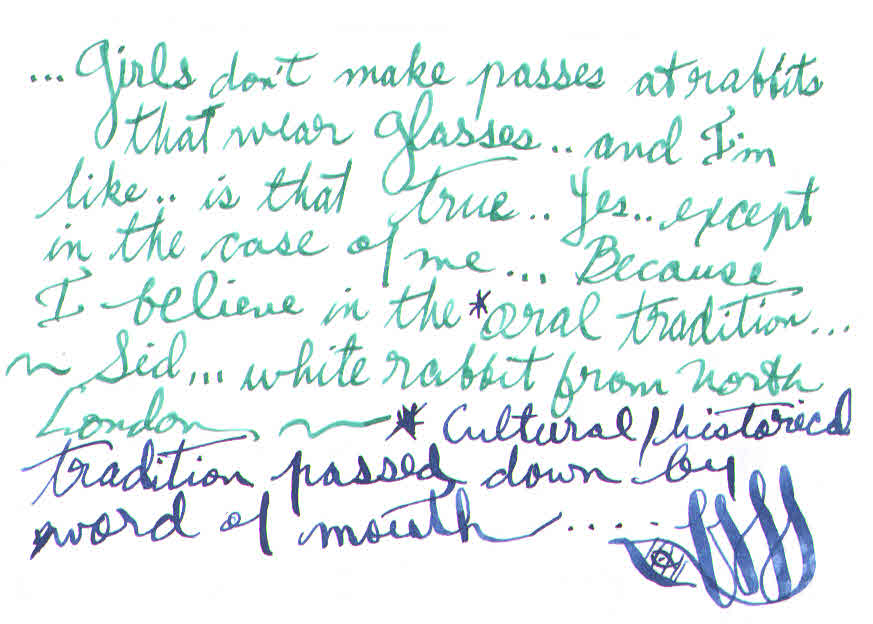 ... Girls don't make passes at rabbits
that wear glasses.. and I'm
like.. is that true.. Yes.. except
in the case of me... Because
I believe in the *oral tradition...
~ Sid... white rabbit from North
London ~ * Cultural/historical
tradition passed down by
word of mouth .....